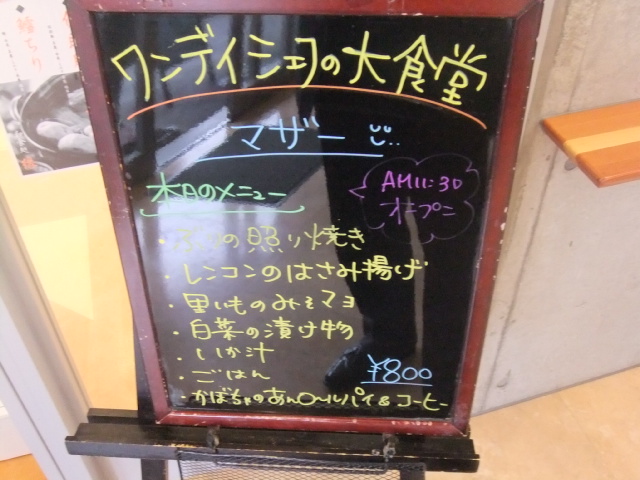 ワンデイシェフの大食堂
マザー
本日のメニュー
AM11:30
オープン
・ぶりの照り焼き
・レンコンのはさみ揚げ
・里いものみそマヨ
・白菜の漬け物
・いか汁
・ごはん
¥800
・かぼちゃのあんロールパイ&コーヒー